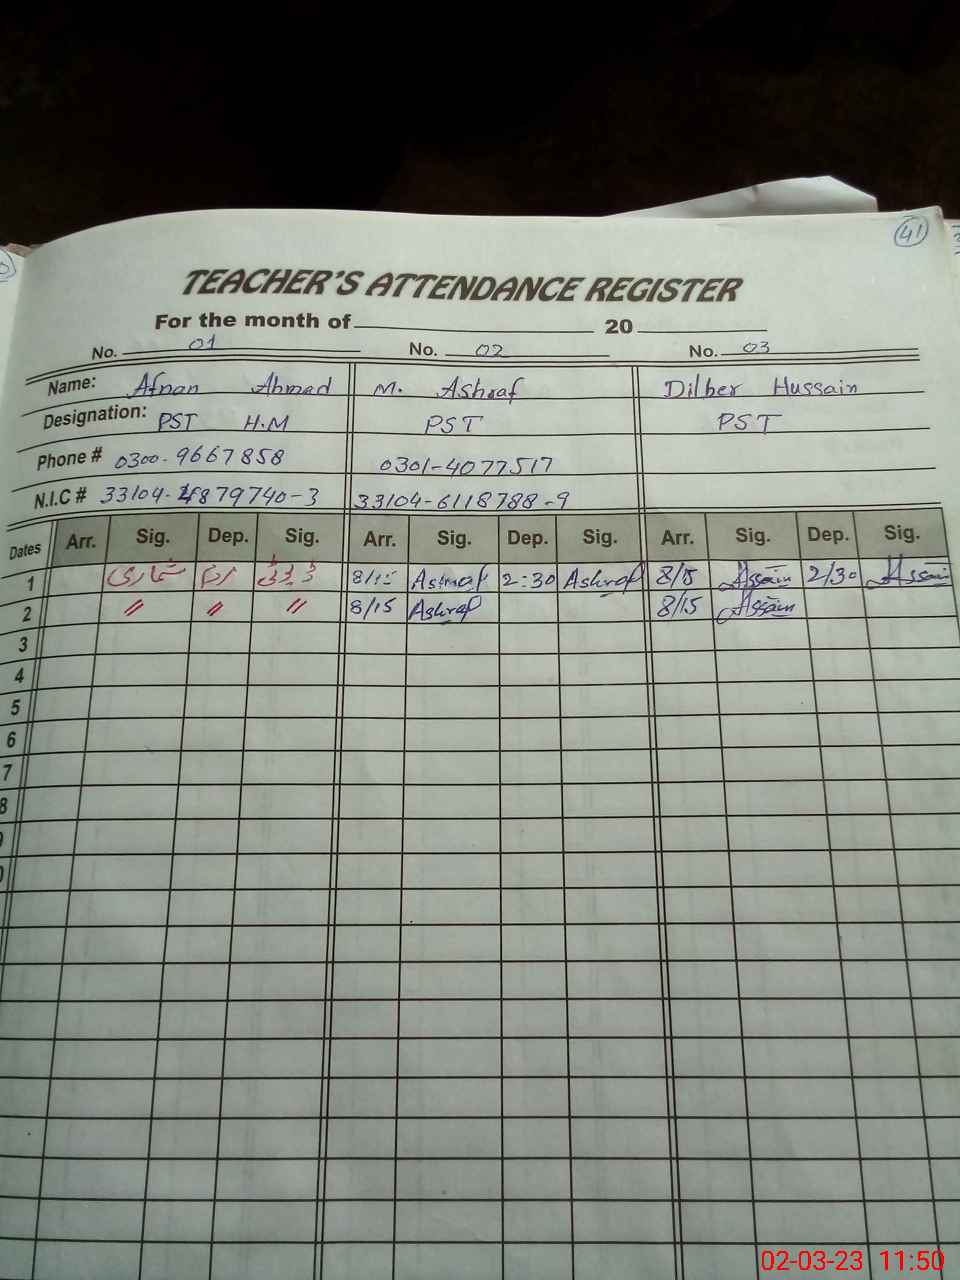 41
TEACHER'S ATTENDANCE REGISTER
For the month of 20
No. 01 No. 02 No. 03
Name: Afnan Ahmad M. Ashraf Dilber Hussain
Designation: PST H.M PST PST
Phone # 0300-9667858 0301-4077517
N.I.C # 33104-4879740-3 33104-6118788-9
Dates Arr. Sig. Dep. Sig. Arr. Sig. Dep. Sig. Arr. Sig. Dep. Sig.
1 مردم شماری ڈیوٹی 8/15 Ashraf 2:30 Ashraf 8/15 Assain 2/30 Assain
2 〃 〃 〃 8/15 Ashraf 8/15 Assain
3
4
5
6
7
8
02-03-23 11:50